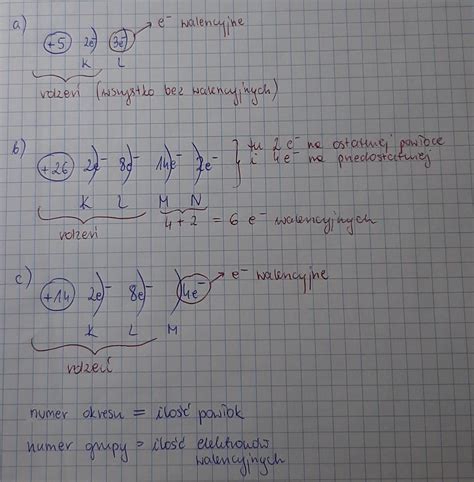 a) +5 2e⁻ 3e⁻ → e⁻ walencyjne
K L
rdzeń (wszystko bez walencyjnych)
b) +26 2e⁻ 8e⁻ 14e⁻ 2e⁻ } tu 2 e⁻ na ostatniej powłoce
i 4e⁻ na przedostatniej
K L M N
rdzeń 4+2 = 6 e⁻ walencyjnych
c) +14 2e⁻ 8e⁻ 4e⁻ → e⁻ walencyjne
K L M
rdzeń
numer okresu = ilość powłok
numer grupy = ilość elektronów
walencyjnych